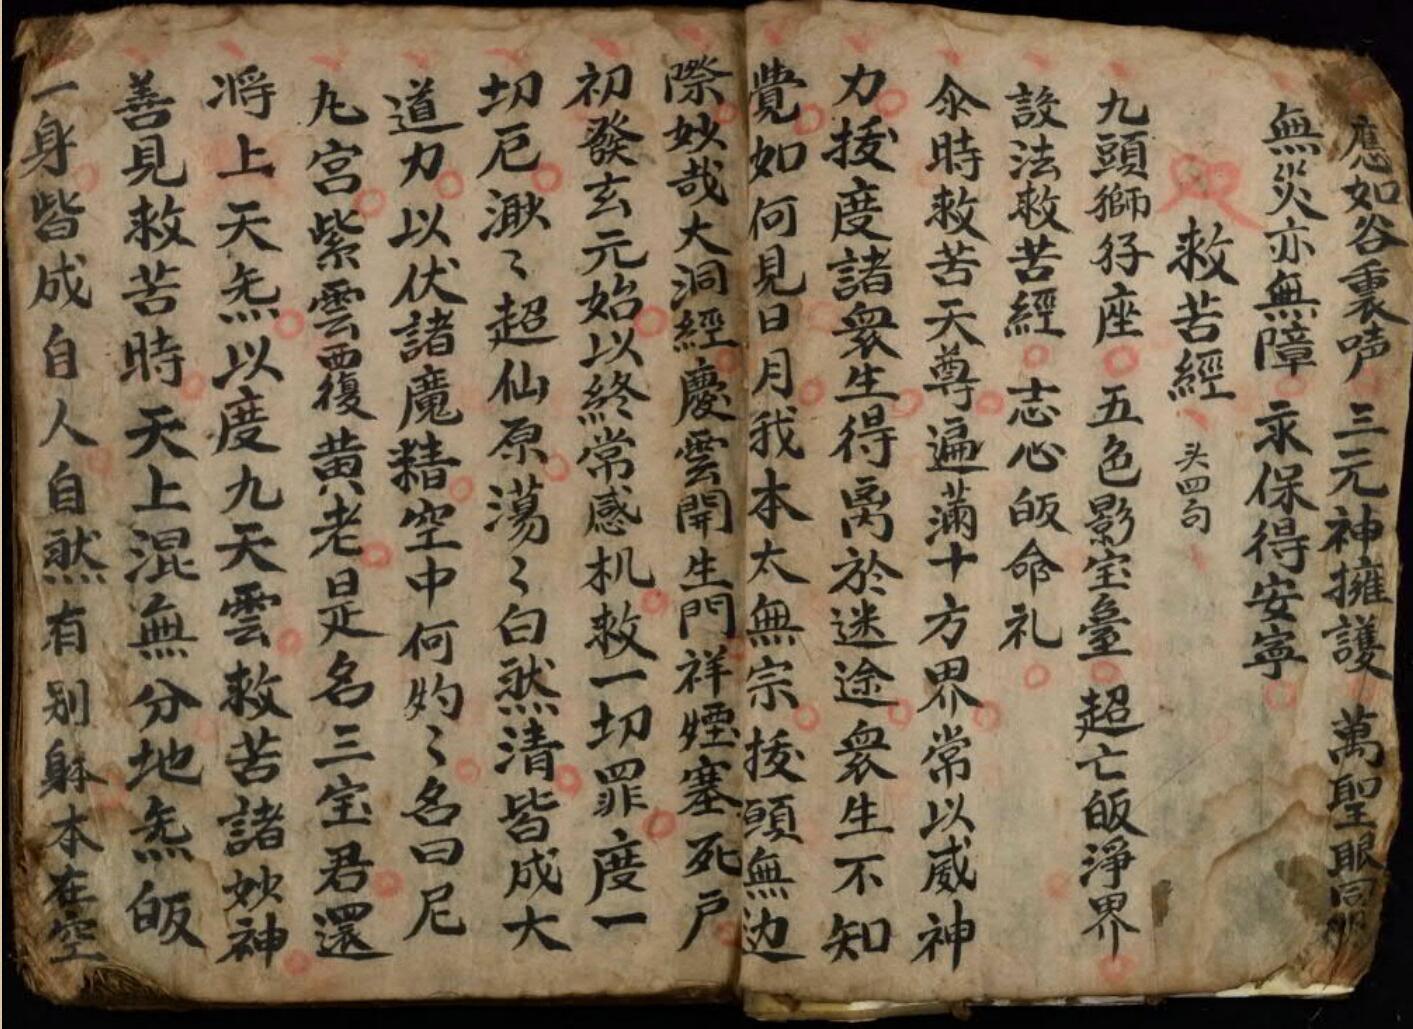 應如谷裏声 三元神擁護 萬聖眼同明
無災亦無障 永保得安寧
救苦經 头四句
九頭獅㺭座 五色影宝臺 超亡皈淨界
設法救苦經 志心皈命礼
尒時救苦天尊遍滿十方界常以威神
力㧞度諸衆生得离於迷途衆生不知
覺如何見日月我本太無宗㧞頭無边
際妙哉大洞經慶雲開生門祥煙塞死户
初發玄元始以終常感机救一切罪度一
切厄渺〻超仙原蕩〻白然清皆成大
道力以伏諸魔精空中何灼〻名曰尼
九宫紫雲覆黄老是名三宝君還
將上天炁以度九天雲救苦諸妙神
善見救苦時天上混無分地炁皈
一身皆成自人自然有别躰本在空